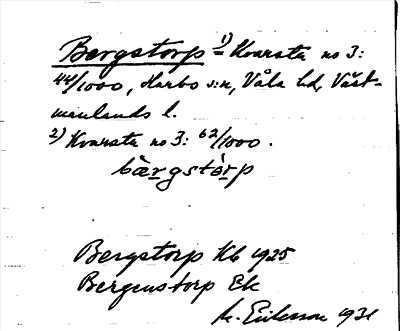 Bergstorp 1) = Kvarsta no 3:
44/1000, Harbo s:n, Våla hd, Väst-
manlands l.
2) Kvarsta no 3: 62/1000.
bærgstòrp
Bergstorp Kb 1925
Bergenstorp Ek
M. Eriksson 1931